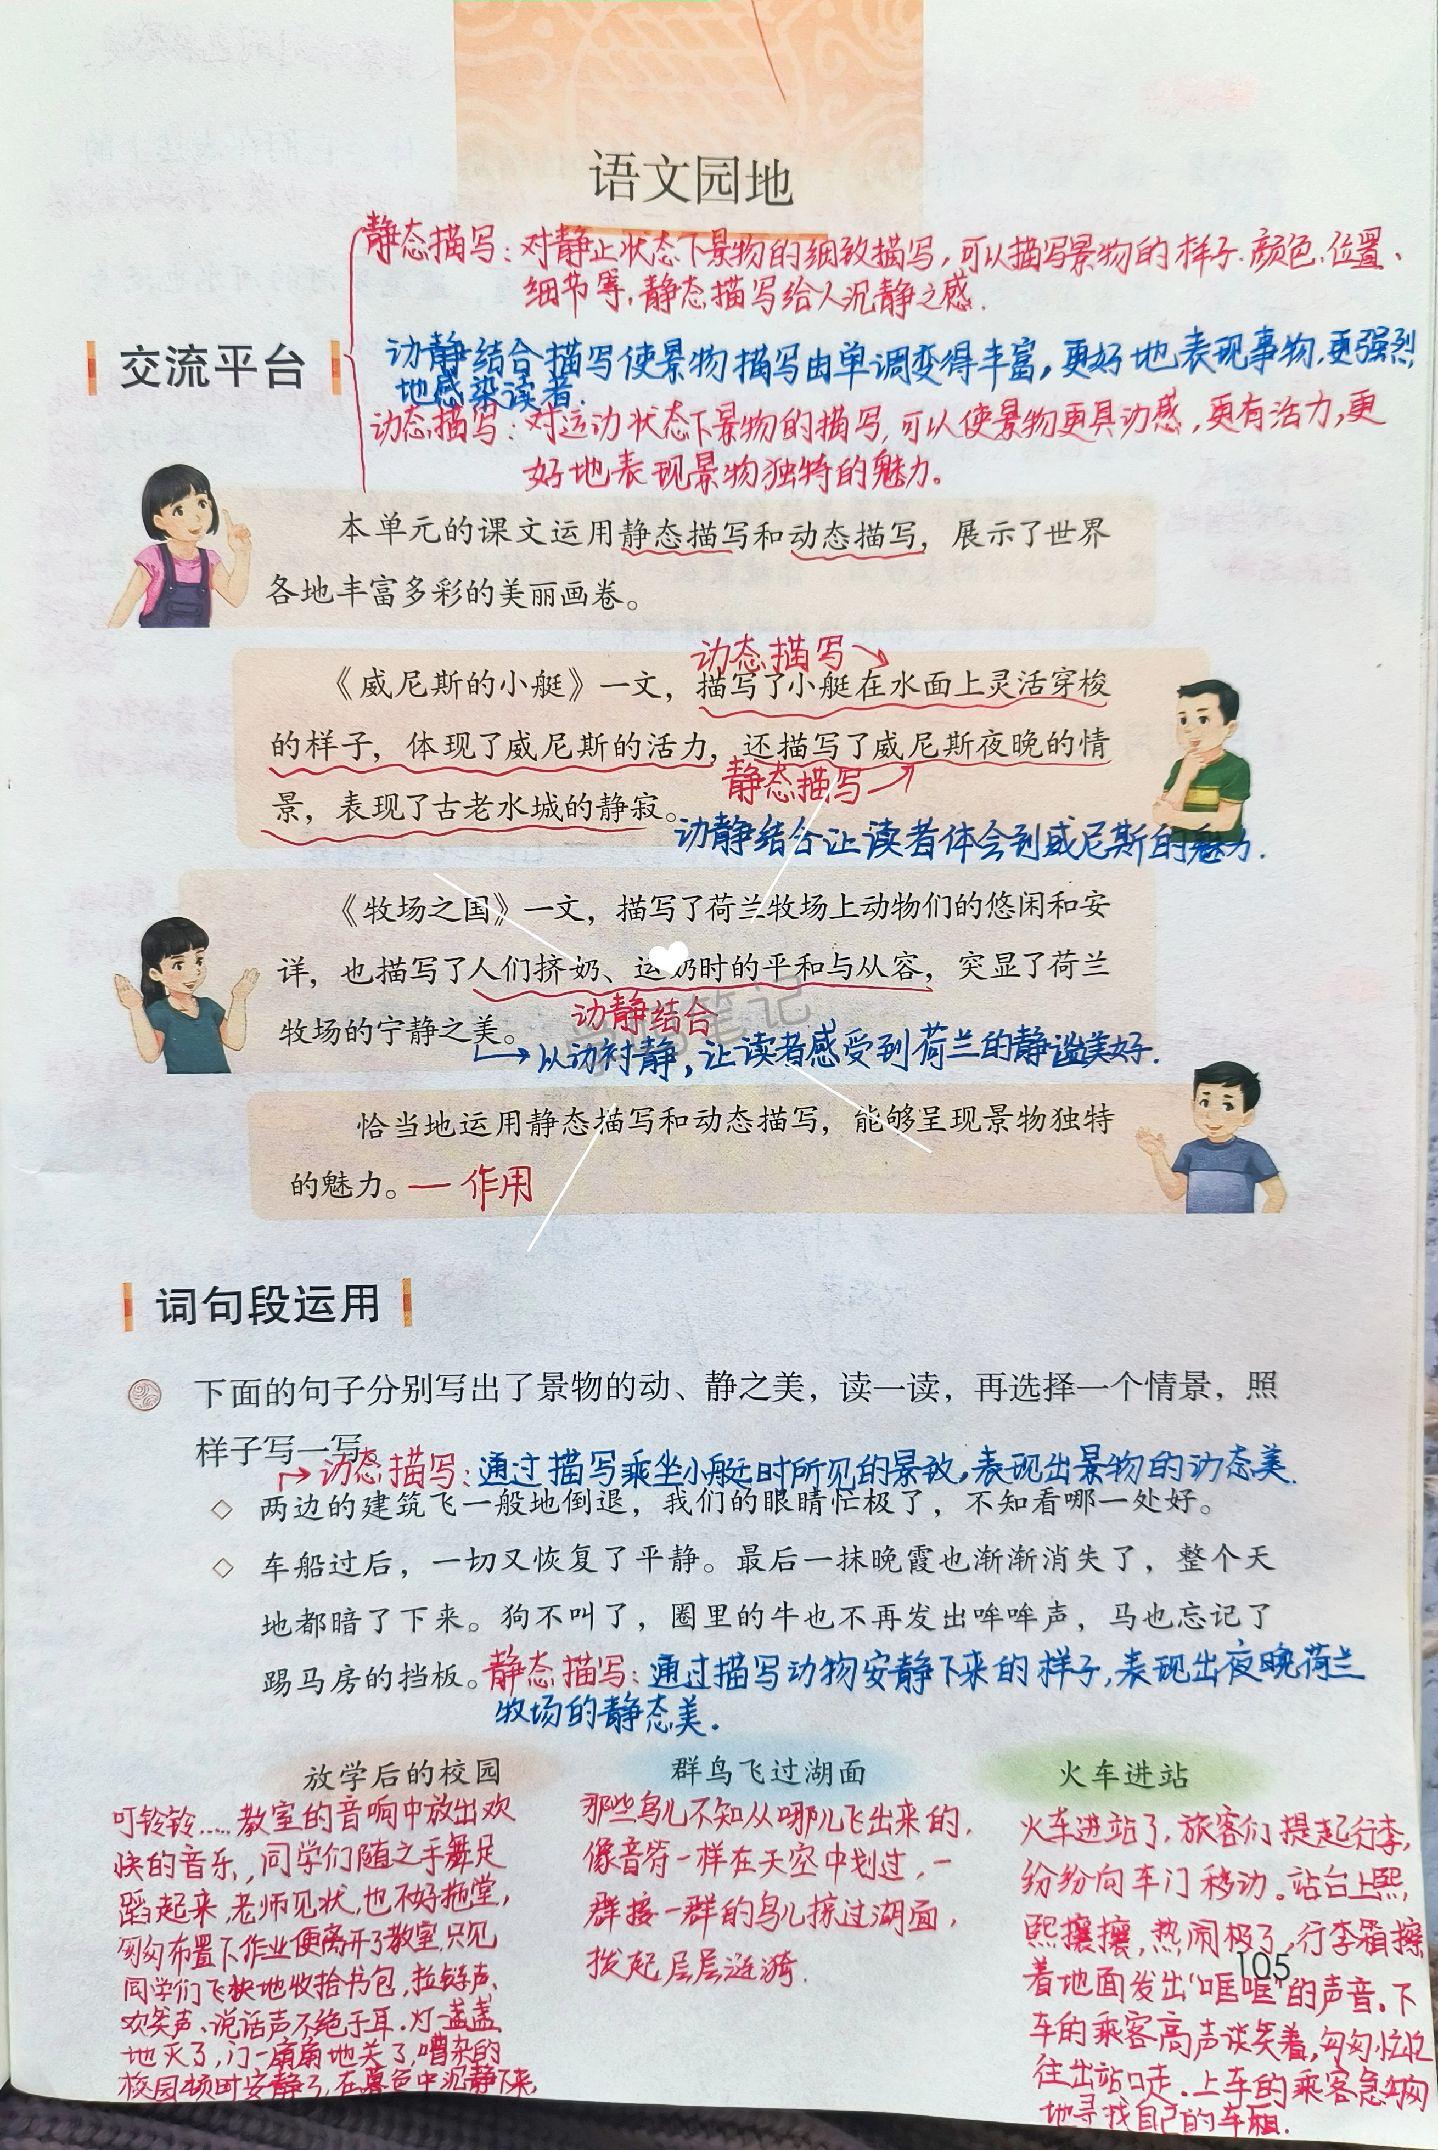 语文园地
静态描写：对静止状态下景物的细致描写，可以描写景物的样子、颜色、位置、
细节等，静态描写给人沉静之感.
交流平台
动静结合描写使景物描写由单调变得丰富，更好地表现事物，更强烈
地感染读者.
动态描写：对运动状态下景物的描写，可以使景物更具动感，更有活力，更
好地表现景物独特的魅力。
本单元的课文运用静态描写和动态描写，展示了世界
各地丰富多彩的美丽画卷。
动态描写
《威尼斯的小艇》一文，描写了小艇在水面上灵活穿梭
的样子，体现了威尼斯的活力，还描写了威尼斯夜晚的情
静态描写
景，表现了古老水城的静寂。
动静结合让读者体会到威尼斯的魅力.
《牧场之国》一文，描写了荷兰牧场上动物们的悠闲和安
详，也描写了人们挤奶、运奶时的平和与从容，突显了荷兰
动静结合
牧场的宁静之美。
以动衬静，让读者感受到荷兰的静谧美好.
恰当地运用静态描写和动态描写，能够呈现景物独特
的魅力。一作用
词句段运用
下面的句子分别写出了景物的动、静之美，读一读，再选择一个情景，照
样子写一写
动态描写：通过描写乘坐小艇时所见的景致，表现出景物的动态美.
◇ 两边的建筑飞一般地倒退，我们的眼睛忙极了，不知看哪一处好。
◇ 车船过后，一切又恢复了平静。最后一抹晚霞也渐渐消失了，整个天
地都暗了下来。狗不叫了，圈里的牛也不再发出哞哞声，马也忘记了
踢马房的挡板。静态描写：通过描写动物安静下来的样子，表现出夜晚荷兰
牧场的静态美.
放学后的校园
叮铃铃……教室的音响中放出欢
快的音乐，同学们随之手舞足
蹈起来，老师见状，也不好拖堂，
匆匆布置下作业便离开了教室.只见
同学们飞快地收拾书包，拉链声、
欢笑声、说话声不绝于耳.灯一盏盏
地灭了，门一扇扇地关了，嘈杂的
校园顿时安静了，在暮色中沉静下来.
群鸟飞过湖面
那些鸟儿不知从哪儿飞出来的，
像音符一样在天空中划过，一
群接一群的鸟儿掠过湖面，
拨起层层涟漪.
火车进站
火车进站了，旅客们提起行李，
纷纷向车门移动。站台上熙
熙攘攘，热闹极了，行李箱擦
着地面发出“哐哐”的声音.下
车的乘客高声谈笑着，匆匆忙忙
往出站口走.上车的乘客急匆匆
地寻找自己的车厢.
105